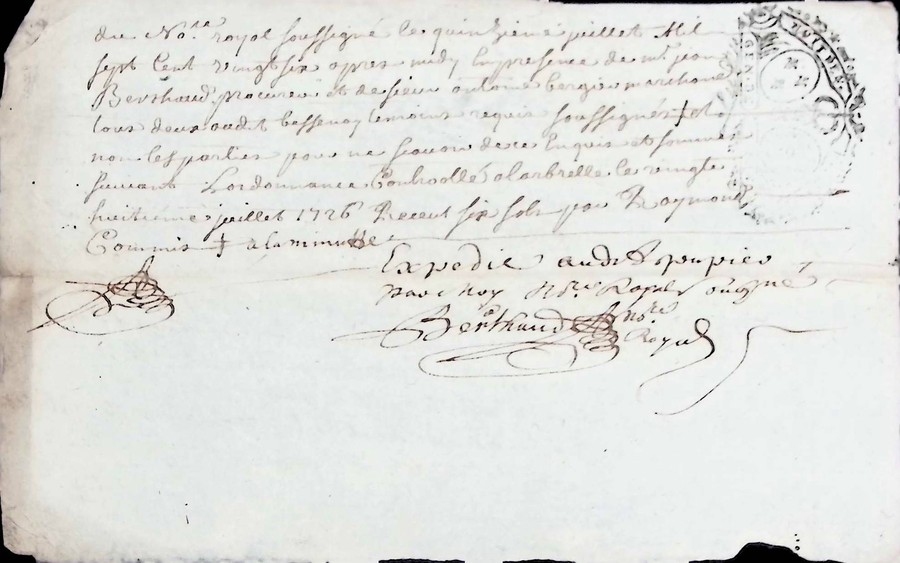 du No.re royal soussigné le quinzieme juillet Mil
sept Cent vingt six apres midy En presence de me jean
Berthaud procureu et de sieur antoine bergier marchand
tous deux audt bessenay temoins requis soussignés et
non les parties pour ne scavoir de ce Enquis et sommés
suivant Lordonnance Controollé a larbrelle le vingt
huitieme juillet 1726 Receut six sols par Raymond
Commis + a la minutte
Expedié audt pupier
par moy No.re Royal sousigné
Berthaud no.re
Royal